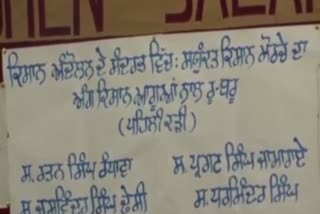 ਕਿਸਾਨ ਅੰਦੋਲਨ ਦੇ ਸੰਦਰਭ ਵਿੱਚ: ਸਯੁੰਕਤ ਕਿਸਾਨ ਮੋਰਚੇ ਦਾ
ਅੰਗ ਕਿਸਾਨ ਆਗੂਆਂ ਨਾਲ ਰੂ-ਬਰੂ
(ਪਹਿਲੀ ਕੜੀ)
ਸ. ਰਤਨ ਸਿੰਘ ਰੰਧਾਵਾ ਸ. ਪ੍ਰਗਟ ਸਿੰਘ ਜਾਮਾਰਾਏ
ਸ. ਸਿੰਘ ਸ. ਸਿੰਘ